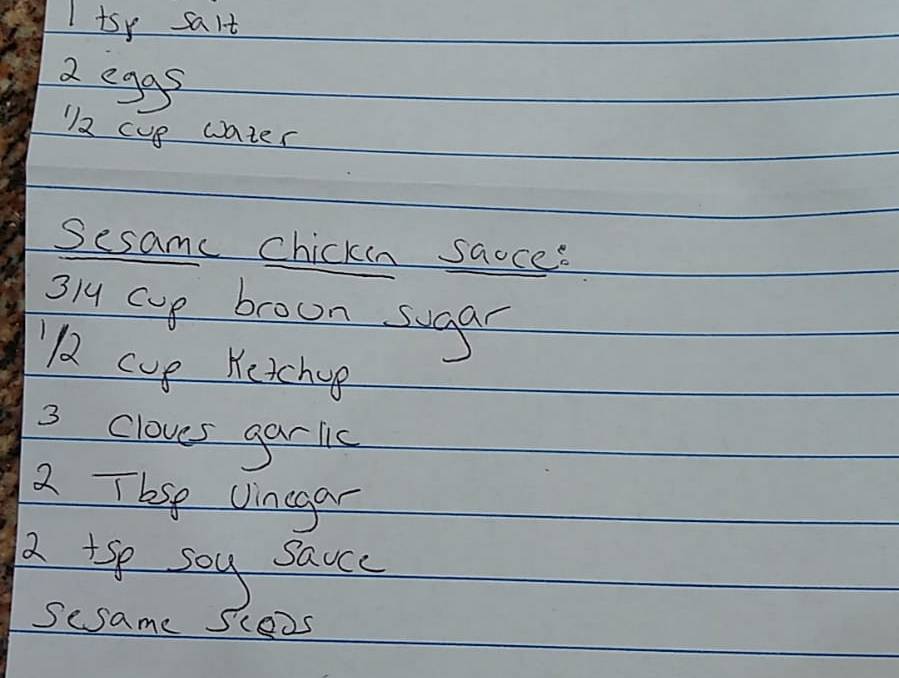 1 tsp salt
2 eggs
1/2 cup water
Sesame Chicken Sauce:
3/4 cup brown sugar
1/2 cup Ketchup
3 cloves garlic
2 Tbsp vinegar
2 tsp soy sauce
Sesame seeds